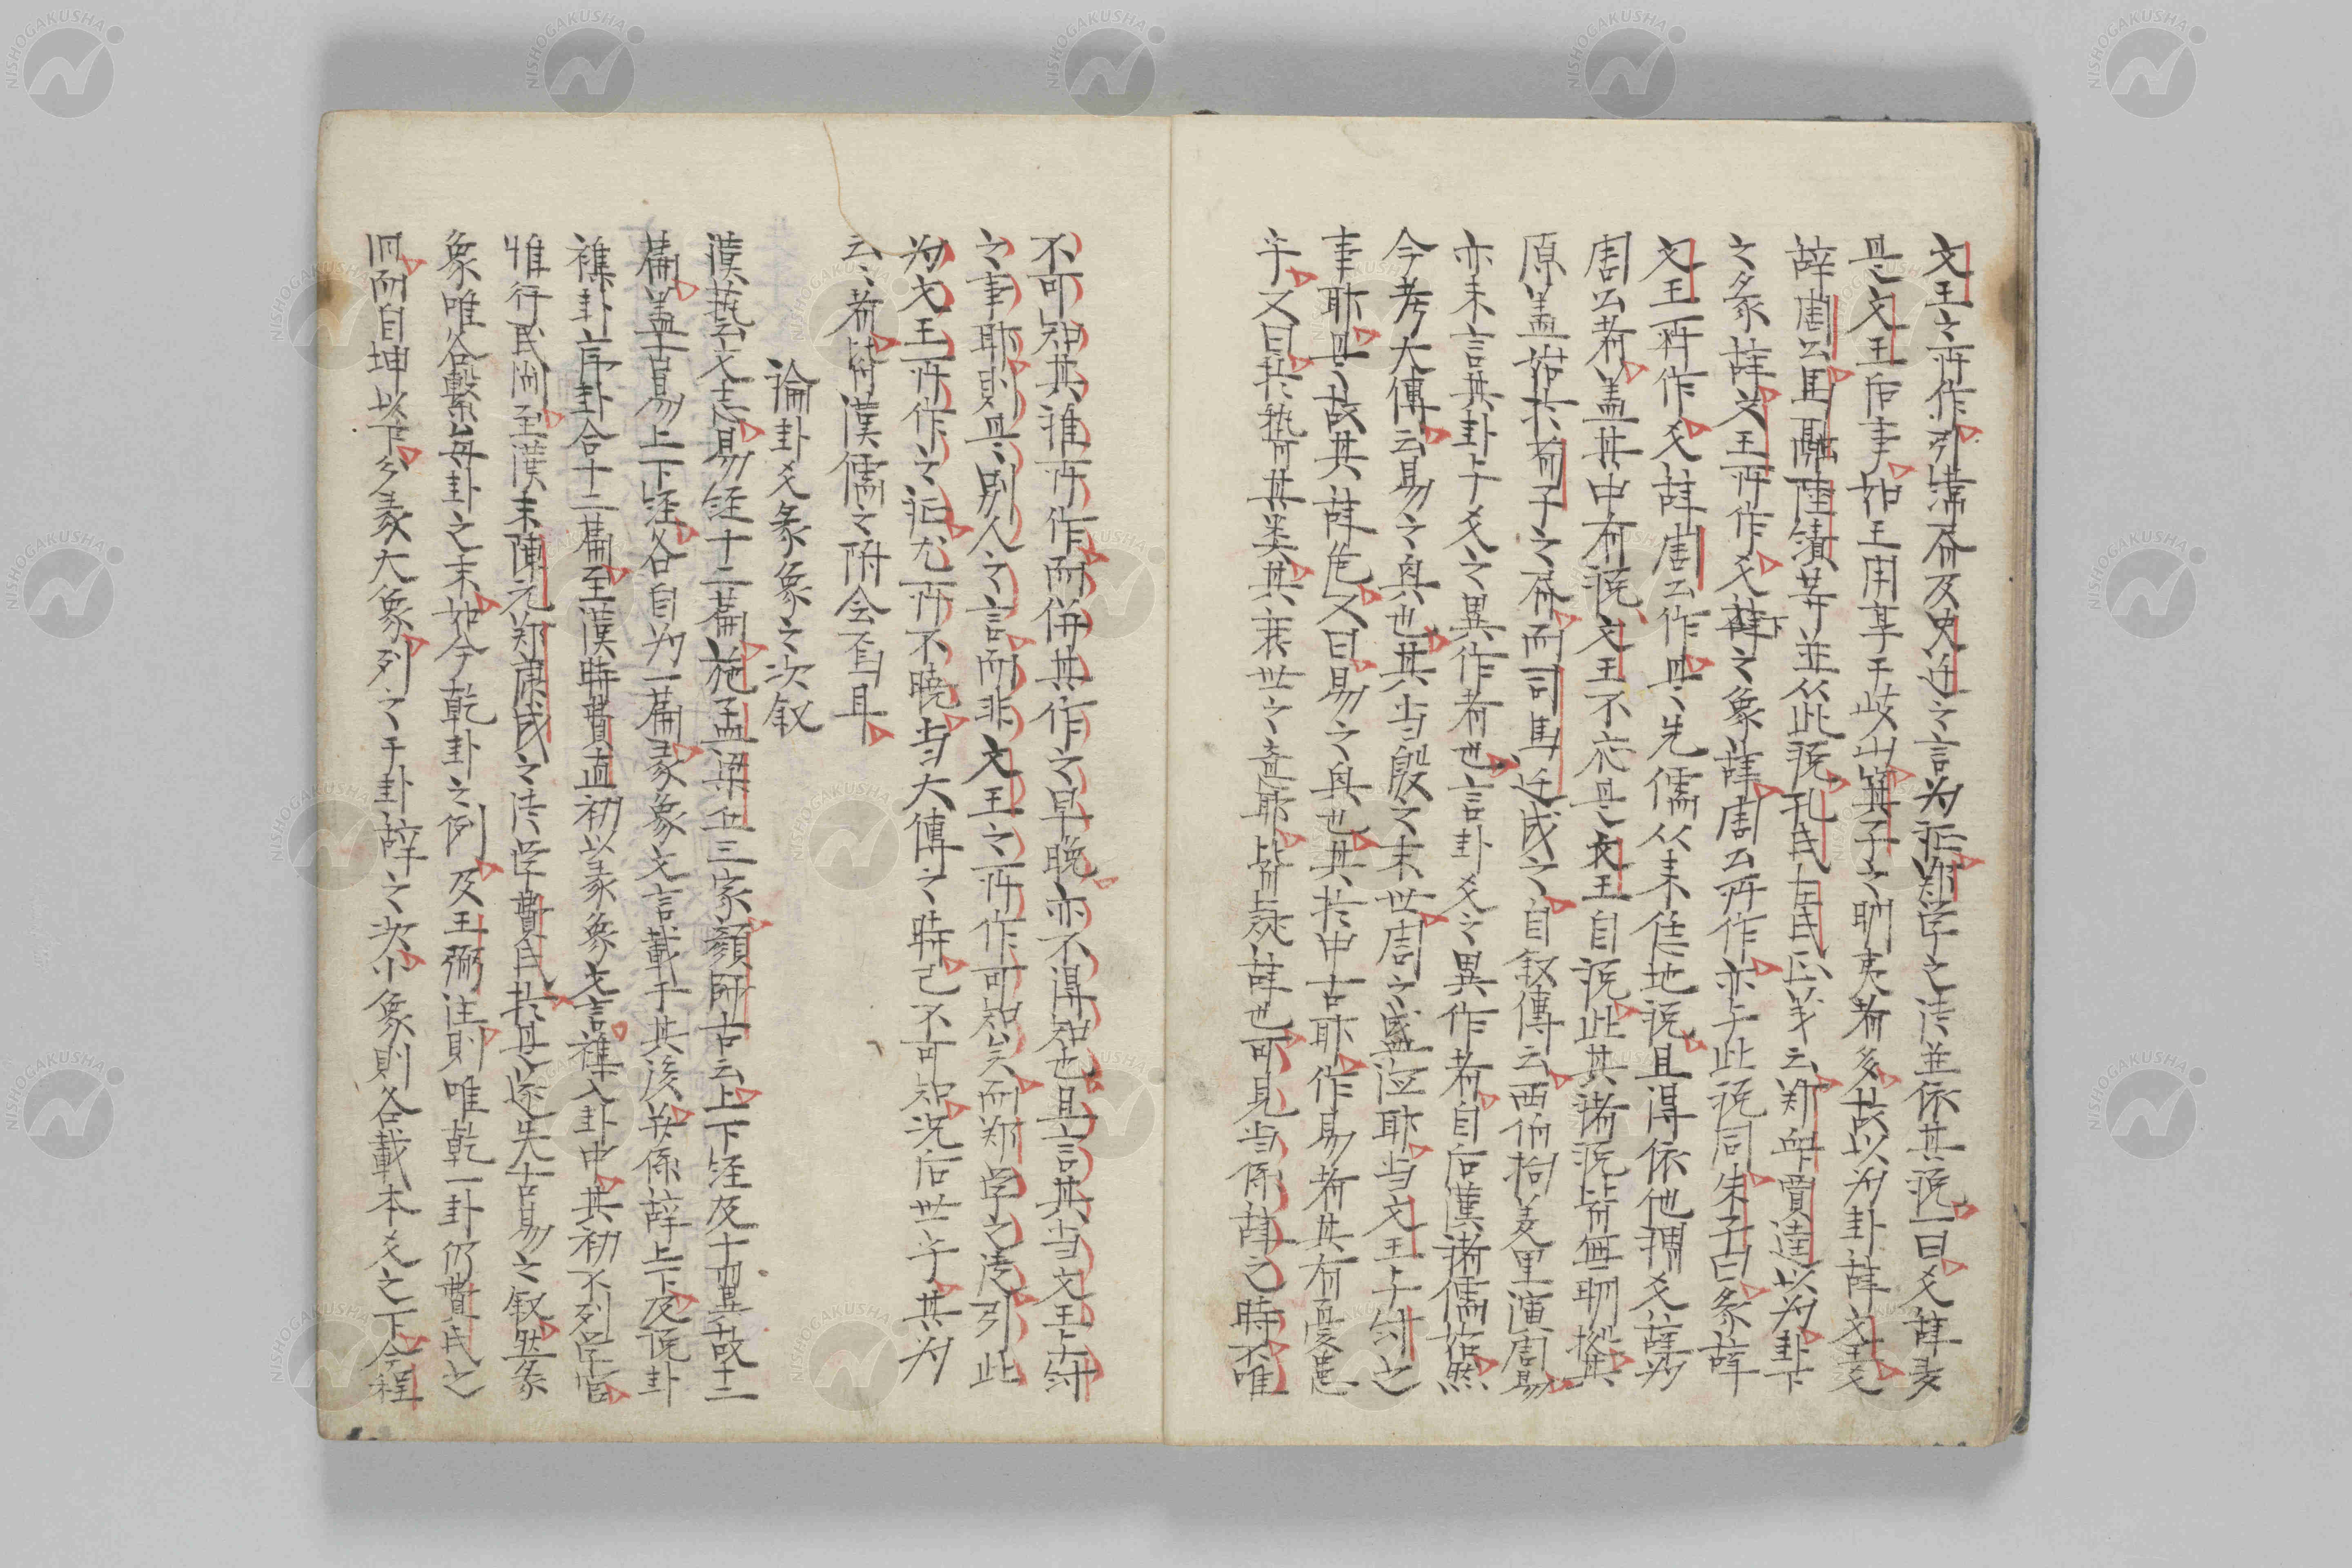 文王之所作引準斎及史迁之言为证鄭学之法並依其説一曰爻辞多
是文王后事如王用享于岐山箕子之明夷者多故以为卦辞文王爻
辞周公馬融陸績等並从此説孔氏左氏正義云鄭衆賈逵以为卦下
之彖辞文王所作爻辞下之象辞周公所作亦与此説同朱子曰彖辞
文王所作爻辞周公作是先儒从来恁地説且得依他謂爻辞为
周公者盖其中有説文王不応是文王自説此其諸説皆無明據其
原盖始於荀子之存而司馬迁成之自叙傳云西伯拘羑里演周易
亦未言其卦与爻之異作者也言卦爻之異作者自后漢諸儒始然
今考大傳云易之興也其当殷之末世周之盛徳耶当文王与紂之
事耶是故其辞危又曰易之興也其於中古耶作易者其有憂患
乎又曰於稽其类其衰世之意耶皆疑辞也可見当係辞之時不唯
不可知其誰所作而併其作之早晚亦不得知也且言其当文王与紂
之事耶則是別人之言而非文王之所作可知矣而鄭学之徒引此
为文王所作之证尤所不曉当大傳之時已不可知况后世乎其为
云云者皆漢儒之附会不写耳
論卦爻彖象之次叙
漢藝文志易経十二篇施孟梁丘三家顔師古云上下経及十翼故十二
篇盖古易上下経各自为一篇彖象文言載于其後并係辞上下及説卦
襍卦序卦合十二篇至漢時費直初以彖象文言襍入卦中其初不列学官
惟行民間至漢末陳元鄭康成之法学費氏於是遂失古易之叙然彖
象唯合繋每卦之末如今乾卦之例及王弼注則唯乾一卦仍費氏之
旧而自坤以下分彖大象列之于卦辞之次小象則各載本爻之下今程